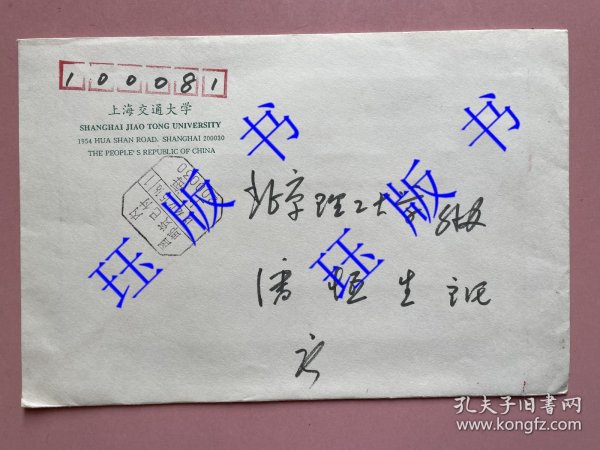 100081
上海交通大学
SHANGHAI JIAO TONG UNIVERSITY
1954 HUA SHAN ROAD, SHANGHAI 200030
THE PEOPLE'S REPUBLIC OF CHINA
国内邮资已付
200030
北京理工大学
潘恒生
珏版书
珏版书
孔夫子旧书网
www.kongfz.com